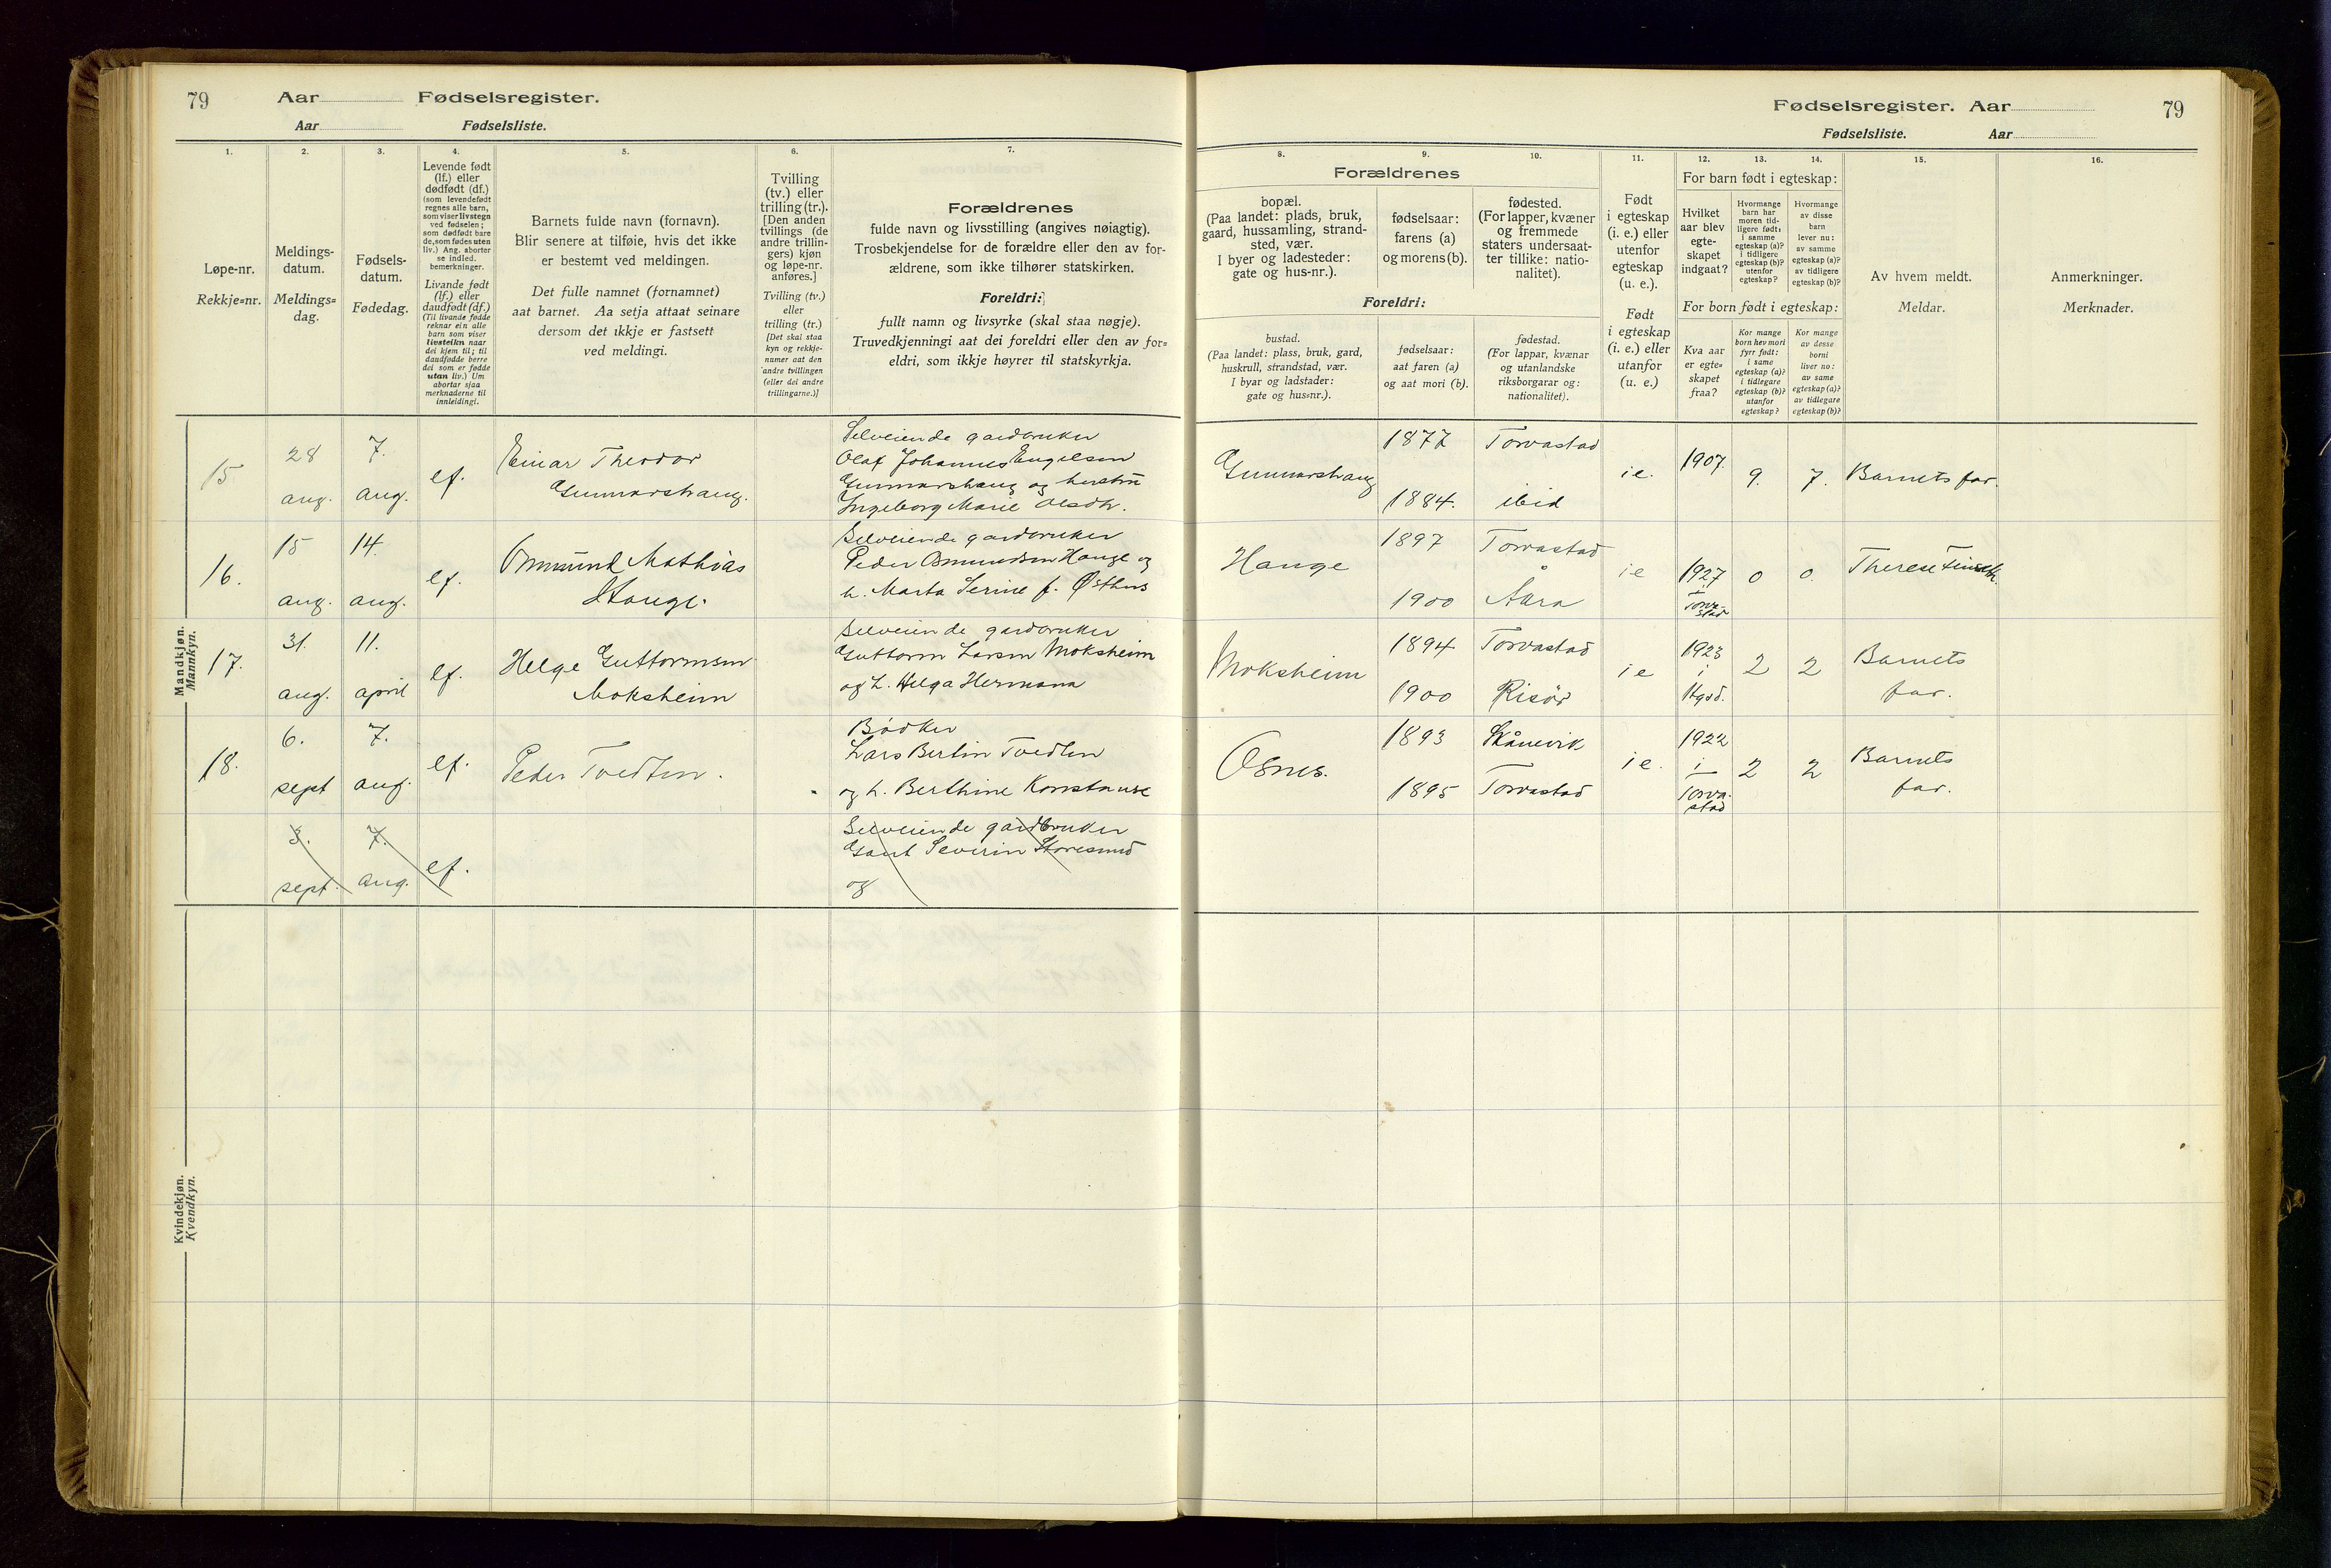 79 Aar Fødselsregister.
Aar Fødselsliste.
Fødselsregister. Aar 79
Fødselsliste. Aar
1.
Løpe-nr.
Rekkje=nr.
2.
Meldings-
datum.
Meldings=
dag.
3.
Fødsels-
datum.
Fødedag.
4.
Levende født
(lf.) eller
dødfødt (df.)
(som levendefødt
regnes alle barn,
som viser livstegn
ved fødselen;
som dødfødt bare
de, som fødes uten
liv.) Ang. aborter
se indled.
bemerkninger.
Livande født
(lf.) eller
daudfødt (df.)
(Til livande fødde
reknar ein alle
barn som viser
livsteikn naar
dei kjem til; til
daudfødde berre
dei som er fødde
utan liv.) Um
abortar sjaa
merknaderne til
innleidingi.
5.
Barnets fulde navn (fornavn).
Blir senere at tilføie, hvis det ikke
er bestemt ved meldingen.
Det fulle namnet (fornamnet)
aat barnet. Aa setja attaat seinare
dersom det ikkje er fastsett
ved meldingi.
6.
Tvilling
(tv.) eller
trilling (tr.).
[Den anden
tvillings (de
andre trillin-
gers) kjøn
og løpe-nr.
anføres.]
Tvilling (tv.)
eller
trilling (tr.)
[Det skal staa
kyn og rekkje-
numer aat den
andre tvillingen
(eller dei andre
trillingarne.)]
7.
Forældrenes
fulde navn og livsstilling (angives nøiagtig).
Trosbekjendelse for de forældre eller den av for-
ældrene, som ikke tilhører statskirken.
Foreldri:
fullt namn og livsyrke (skal staa nøgje).
Truvedkjenningi aat dei foreldri eller den av for=
eldri, som ikkje høyrer til statskyrkja.
Forældrenes
8.
bopæl.
(Paa landet: plads, bruk,
gaard, hussamling, strand-
sted, vær.
I byer og ladesteder:
gate og hus-nr.).
9.
fødselsaar:
farens (a)
og morens (b).
10.
fødested.
(For lapper, kvæner
og fremmede
staters undersaat-
ter tillike: natio-
nalitet).
Foreldri:
bustad.
(Paa landet: plass, bruk, gard,
huskrull, strandstad, vær.
I byar og ladstader:
gate og hus=nr.).
fødselsaar:
aat faren (a)
og aat mori (b).
fødestad.
(For lappar, kvænar
og utanlandske
riksborgarar og:
nationalitet).
11.
Født
i egteskap
(i. e.) eller
utenfor
egteskap
(u. e.).
Født
i egteskap
(i. e.) eller
utanfor
(u. e.)
12. 13. 14.
For barn født i egteskap:
Hvilket
aar blev
egte-
skapet
indgaat?
Hvormange
barn har
moren tid-
ligere født:
i samme
egteskap (a)?
i tidligere
egteskap (b)?
utenfor
egteskap?
Hvormange
av disse
barn
lever nu:
av samme
egteskap (a)?
av tidligere
egteskap (b)?
For born født i egteskap:
Kva aar
er egte=
skapet
fraa?
Kor mange
born hev mori
fyrr født:
i same
egteskap (a)?
i tidlegare
egteskap (b)?
utanfor
egteskap?
Kor mange
av desse
borni
liver no:
av same
egteskap (a)?
av tidlegare
egteskap (b)?
15.
Av hvem meldt.
Meldar.
16.
Anmerkninger.
Merknader.
Mandkjøn.
Mannkyn.
15
28
aug.
7.
aug.
lf.
Einar Theodor
Gunnarshaug.
Selveiende gardbruker
Olaf Johannes Engelsen
Gunnarshaug og hustru
Ingeborg Marie Olsdtr.
Gunnarshaug
1877 Torvastad
1884. ibid
i e. 1907. 9. 7. Barnets far.
16.
15
aug.
14.
aug.
lf.
Ommund Mathias
Hauge.
Selveiende gardbruker
Peder Omundsen Hauge og
h. Marta Serine f. Østhus
Hauge
1897 Torvastad
1900 Åkra
i e 1927
i
Torva-
stad
0 0. Therese
17.
31.
aug.
11.
april
lf.
Helge Guttormsen
Moksheim
Selveiende gardbruker
Guttorm Larsen Moksheim
og h. Helga Hermana
Moksheim
1894 Torvastad
1900 Risör
i e 1923
i
Hgsd.
2 2 Barnets
far.
18.
6.
sept
7.
aug.
lf.
Peder Tvedten.
Bödker
Lars Bertin Tvedten
og h. Berthine Konstanse
Osnes.
1893 Skånevik
1895 Torvastad
i e. 1922
i
Torva-
stad
2 2 Barnets
far.
3.
sept.
7.
aug.
lf.
Selveiende gardbruker
Gaut Severin Storesund
og
Kvindekjøn.
Kvendkyn.